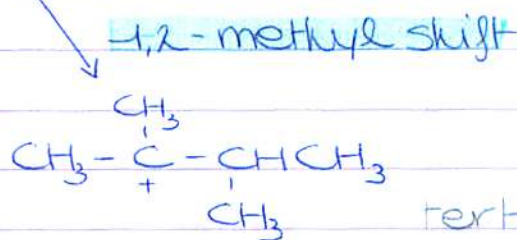 1,2-methyl shift
CH₃
CH₃ - C - CHCH₃
+
CH₃
tert